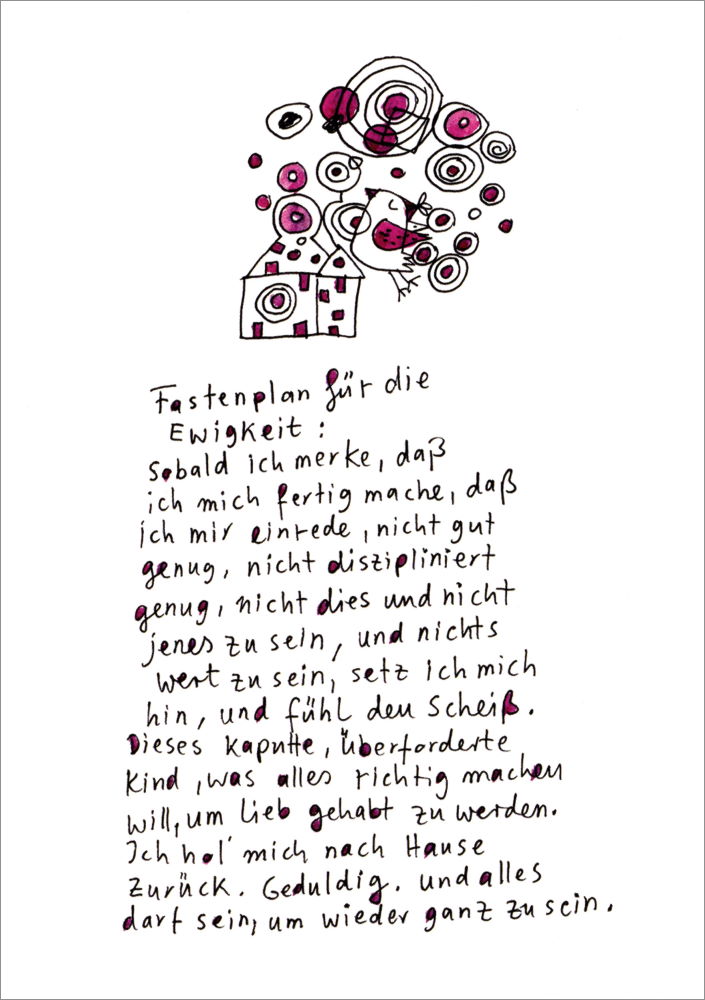 Fastenplan für die
Ewigkeit:
Sobald ich merke, daß
ich mich fertig mache, daß
ich mir einrede, nicht gut
genug, nicht diszipliniert
genug, nicht dies und nicht
jenes zu sein, und nichts
wert zu sein, setz ich mich
hin, und fühl den Scheiß.
Dieses kaputte, überforderte
Kind, was alles richtig machen
will, um lieb gehabt zu werden.
Ich hol' mich nach Hause
zurück. Geduldig. und alles
darf sein, um wieder ganz zu sein.